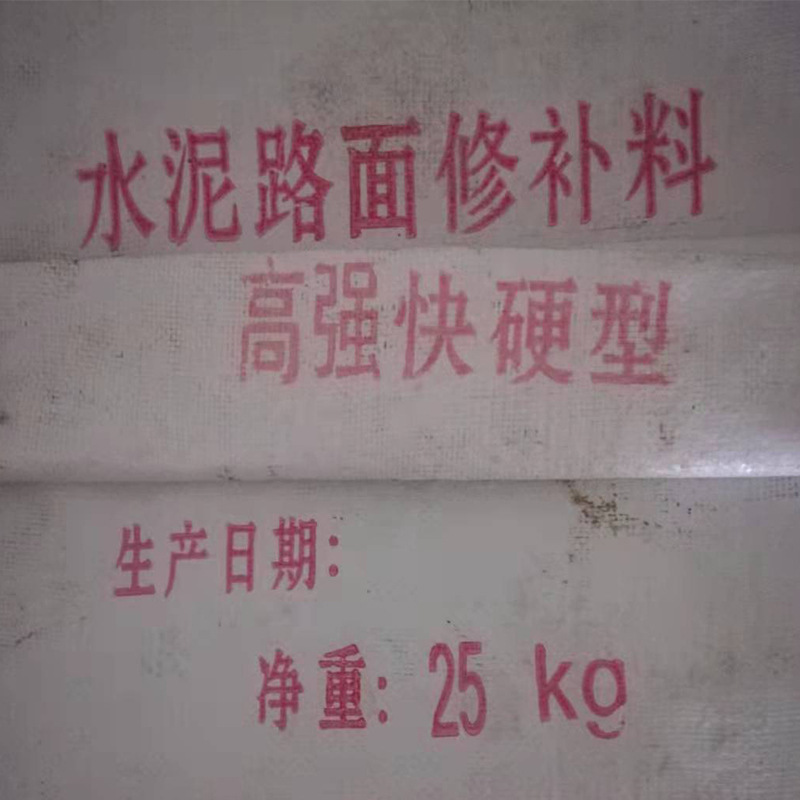 水泥路面修补料
高强快硬型
生产日期:
净重: 25 kg